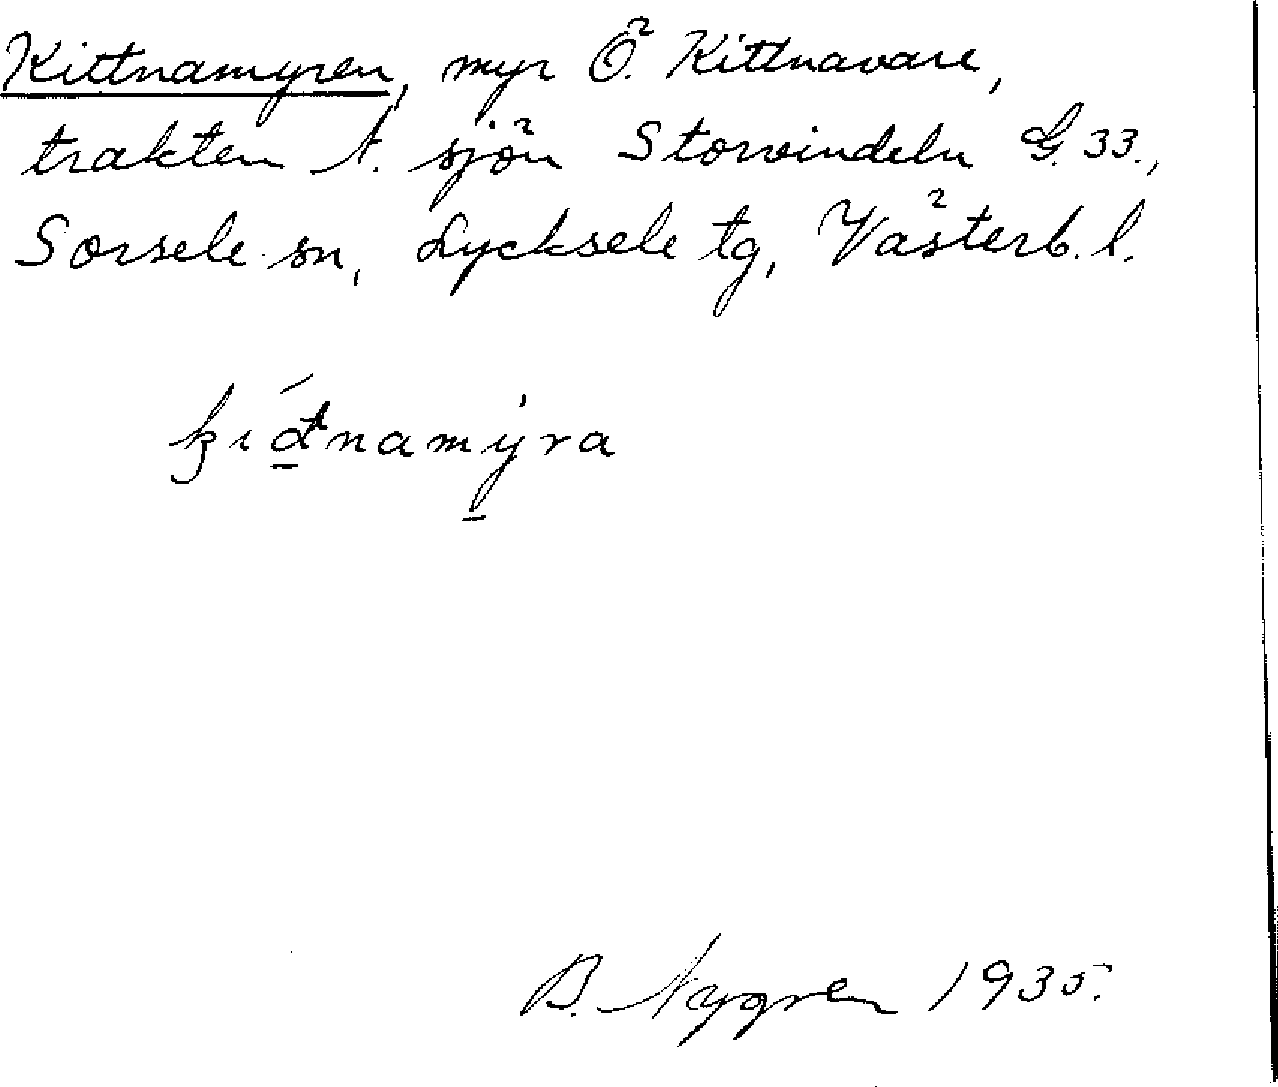 Kittnamyren, myr Ö. Kittnavare,
trakten N. sjön Storvindeln G. 33.,
Sorsele sn, Lycksele tg, Västerb. l.
B. Nygren 1935.